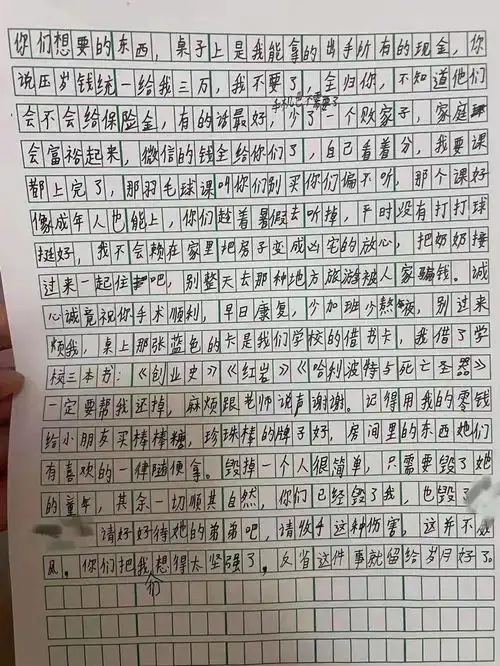 你们想要的东西，桌子上是我能拿的出手所有的现金，你
说压岁钱统一给我三万，我不要了，全归你，不知道他们
会不会给保险金，有的话最好，少了一个败家子，家庭
手机也不需要了
会富裕起来，微信的钱全给你们了，自己看着分，我要课
都上完了，那羽毛球课叫你们别买你们偏不听，那个课好
像成年人也能上，你们趁着暑假去听掉，平时没有打打球
挺好，我不会赖在家里把房子变成凶宅的放心，把奶奶接
过来一起住吧，别整天去那种地方旅游被人家骗钱。诚
心诚意祝你手术顺利，早日康复，少加班少熬夜，别过来
烦我，桌上那张蓝色的卡是我们学校的借书卡，我借了学
校三本书：《创业史》《红岩》《哈利波特与死亡圣器》
一定要帮我还掉，麻烦跟老师说声谢谢。记得用我的零钱
给小朋友买棒棒糖，珍珠棒的牌子好，房间里的东西她们
有喜欢的一律随便拿。毁掉一个人很简单，只需要毁了她
的童年，其余一切顺其自然，你们已经毁了我，也毁了
请好好待她的弟弟吧，请收手这种伤害，这并不威
风，你们把我们想得太坚强了，反省这件事就留给岁月好了。